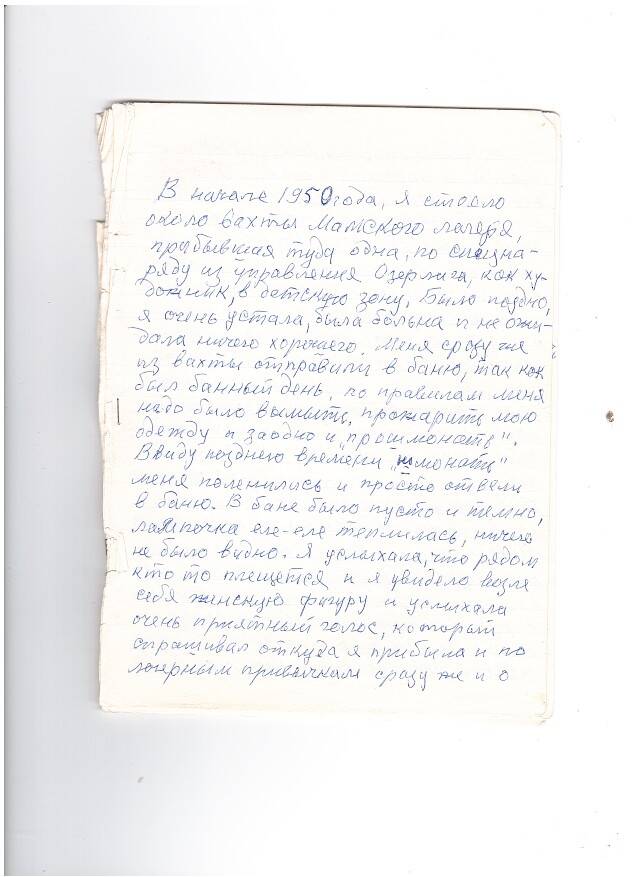 В начале 1950 года, я стояло
около вахты Мамского лагеря,
прибывшая туда одна, по спецна-
ряду из управления Озерлага, как ху-
дожник, в детскую зону. Было поздно,
я очень устала, была больна и не ожи-
дала ничего хорошего. Меня сразу же
из вахты отправили в баню, так как
был банный день. По правилам меня
надо было вымыть, прожарить мою
одежду и заодно и „прошмонать".
Ввиду позднего времени „шмонать"
меня поленились и просто отвели
в баню. В бане было пусто и темно,
лампочка еле-еле теплилась, ничего
не было видно. Я услыхала, что рядом
кто то плещется и я увидело возле
себя женскую фигуру и услыхала
очень приятный голос, который
спрашивал откуда я прибыла и по
лагерным привычкам сразу же и о